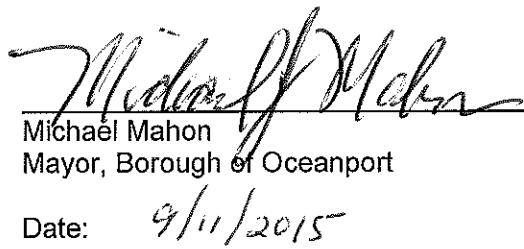 Michael J Mahon
Michael Mahon
Mayor, Borough of Oceanport
Date: 9/11/2015